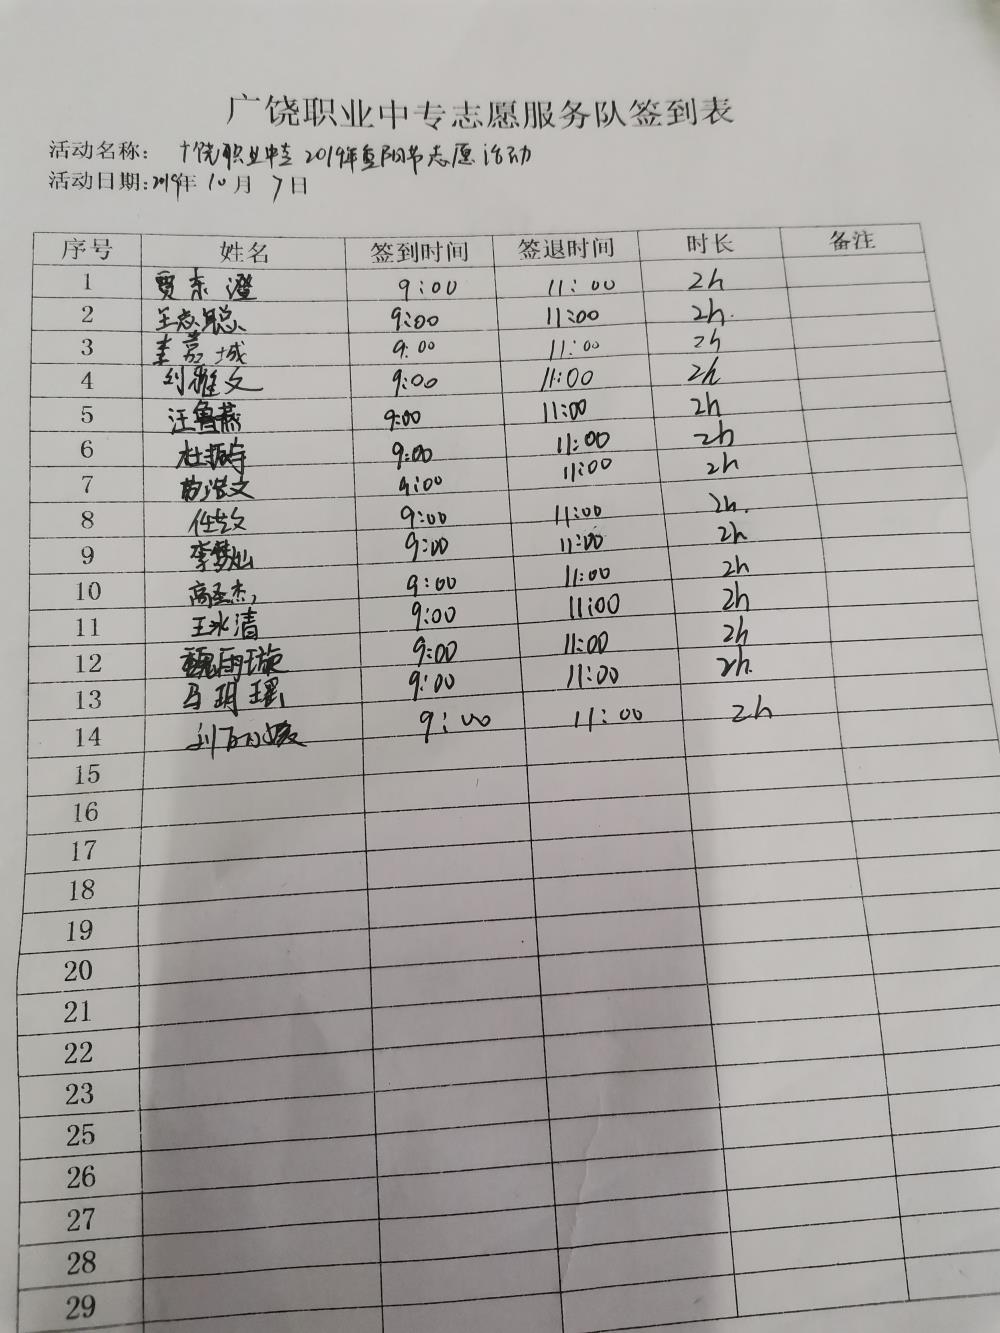 广饶职业中专志愿服务队签到表
活动名称： 广饶职业中专 2019年重阳节志愿活动
活动日期：2019年 10月 7日
序号 姓名 签到时间 签退时间 时长 备注
1 贾东澄 9:00 11:00 2h
2 王志聪 9:00 11:00 2h.
3 李嘉城 9:00 11:00 2h
4 刘雅文 9:00 11:00 2h
5 汪鲁燕 9:00 11:00 2h
6 杜振宇 9:00 11:00 2h
7 浩文 9:00 11:00 2h
8 任文 9:00 11:00 2h.
9 李梦灿 9:00 11:00 2h
10 高圣杰 9:00 11:00 2h
11 王冰清 9:00 11:00 2h
12 魏雨璇 9:00 11:00 2h
13 马玥瑶 9:00 11:00 2h.
14 刘 9:00 11:00 2h
15
16
17
18
19
20
21
22
23
25
26
27
28
29